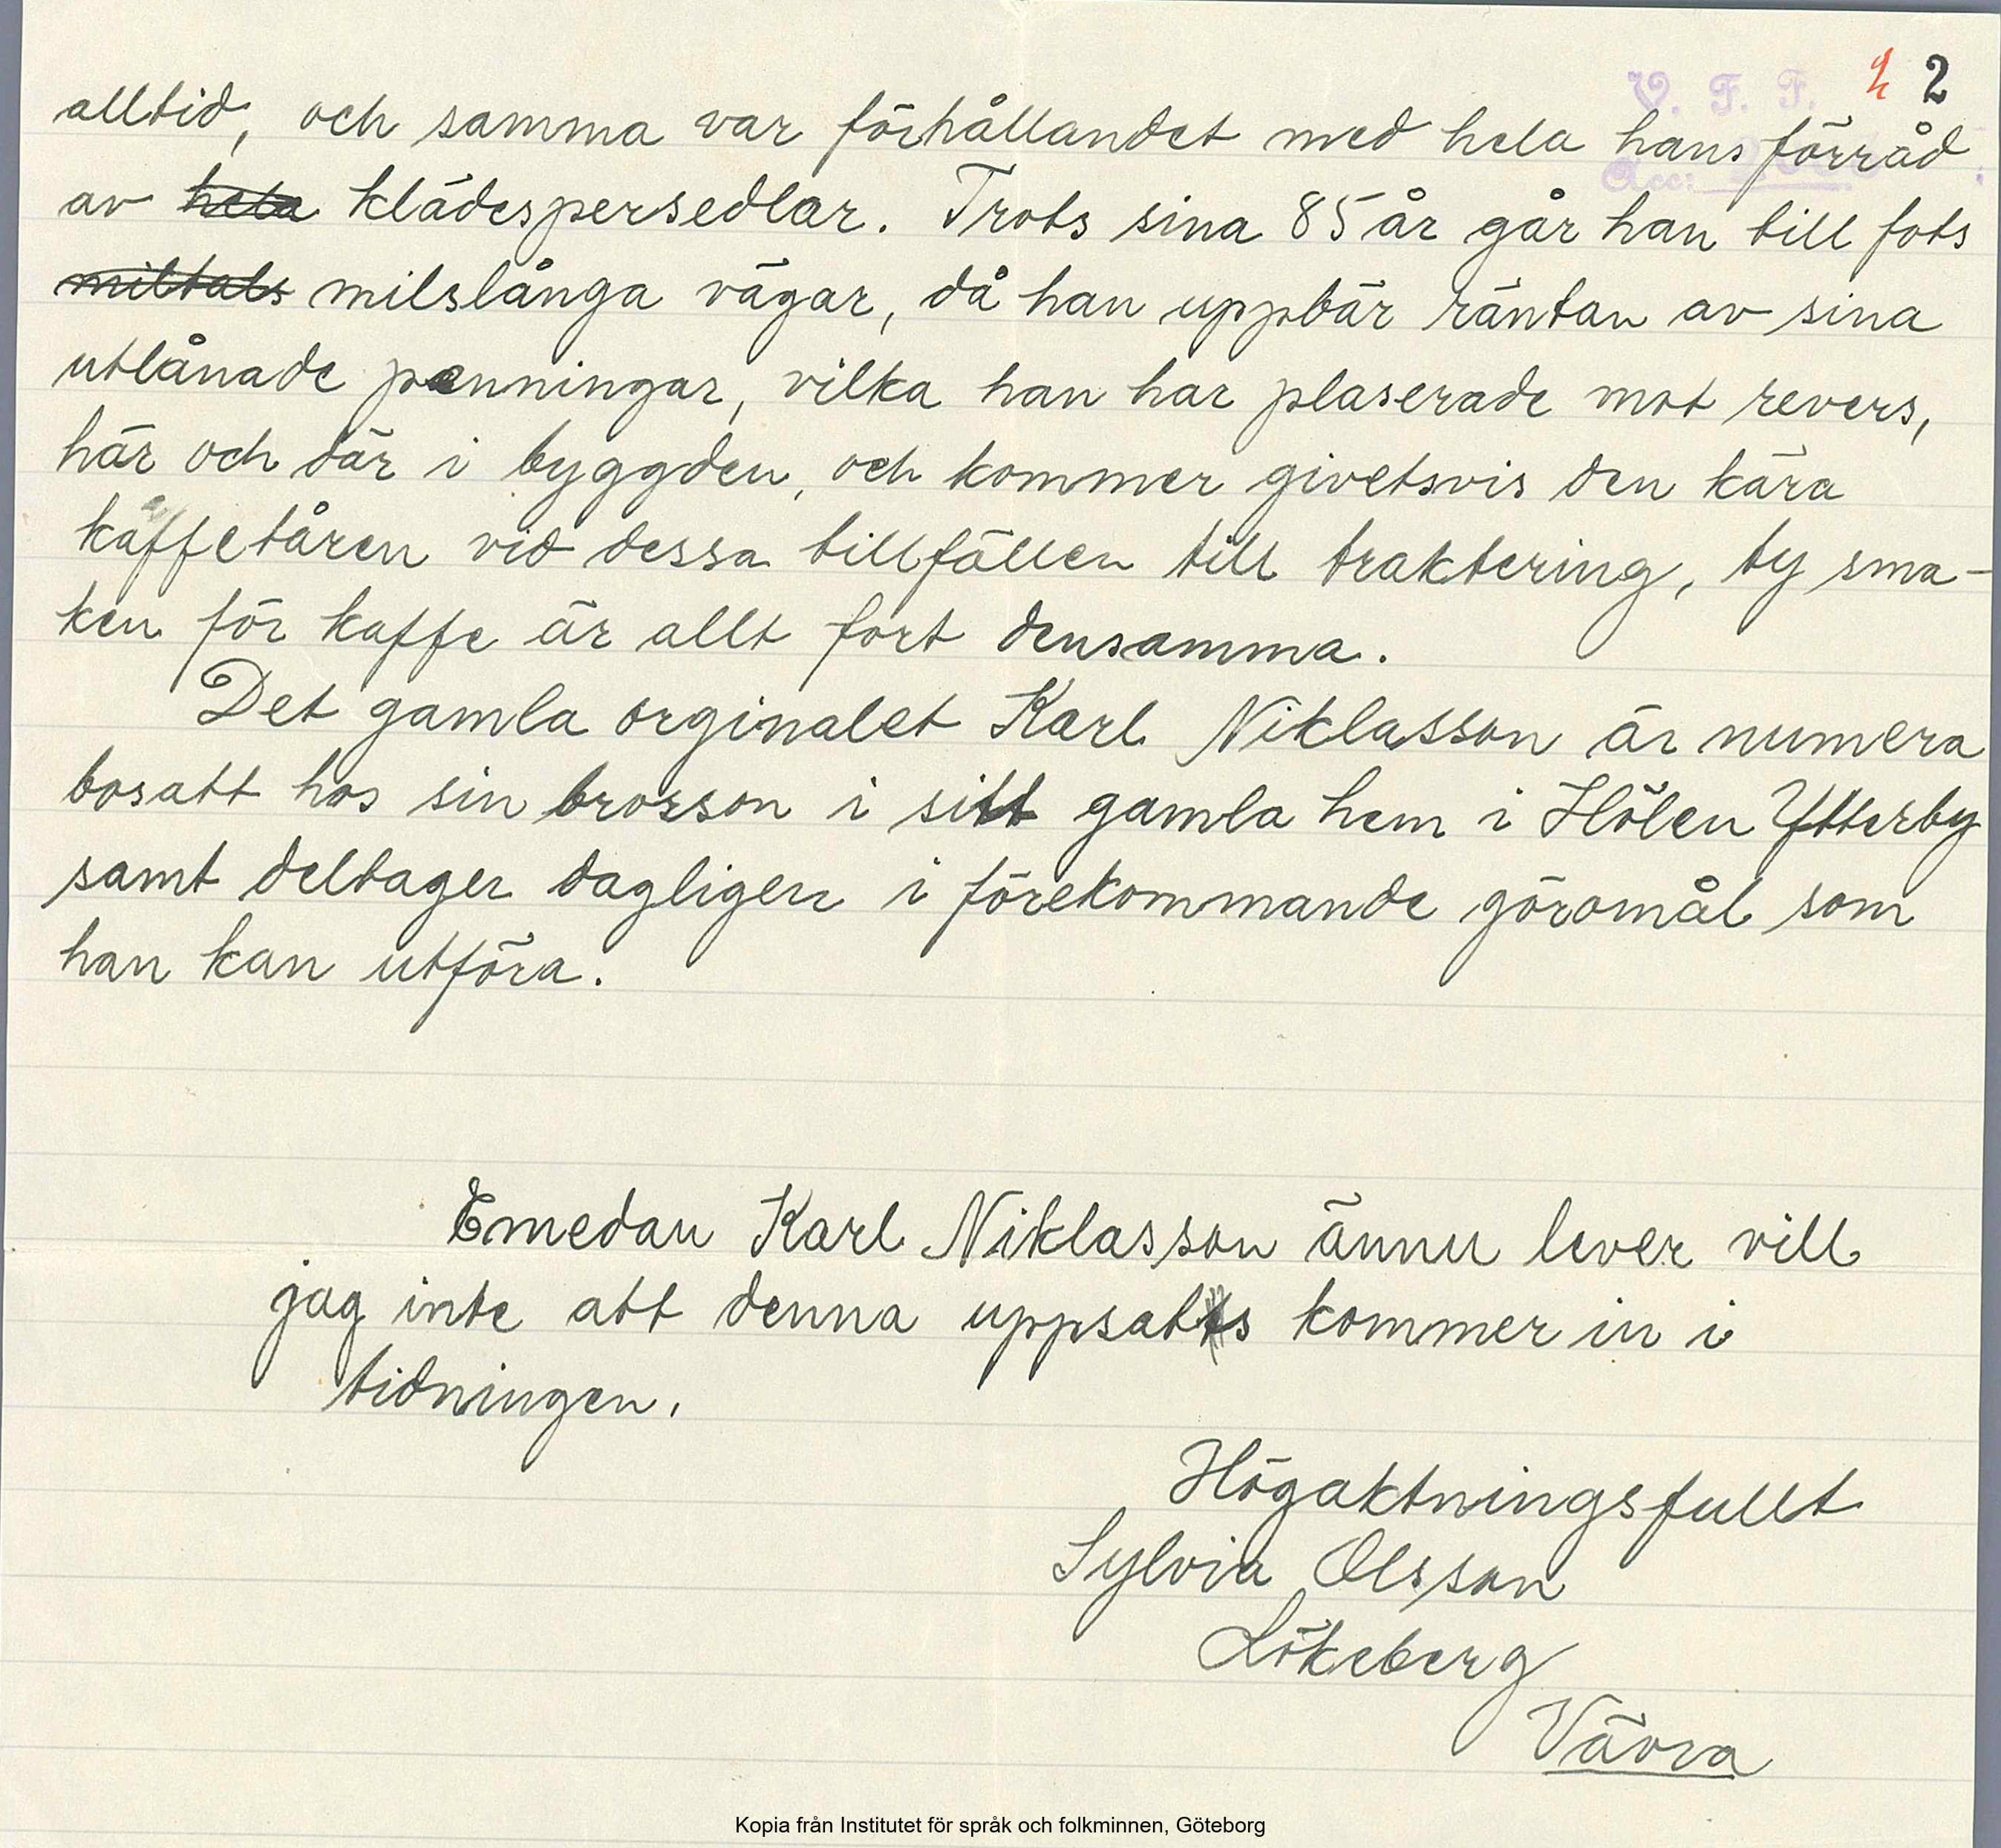 V. F. F. 2 2
Acc:
alltid, och samma var förhållandet med hela hans förråd
av hela klädespersedlar. Trots sina 85 år går han till fots
miltals milslånga vägar, då han uppbär räntan av sina
utlånade penningar, vilka han har plaserade mot revers,
här och där i byggden, och kommer givetsvis den kära
kaffetåren vid dessa tillfällen till traktering, ty sma-
ken för kaffe är allt fort densamma.
Det gamla orginalet Karl Niklasson är numera
bosatt hos sin brorson i sitt gamla hem i Hölen Ytterby
samt deltager dagligen i förekommande göromål som
han kan utföra.
Emedan Karl Niklasson ännu lever vill
jag inte att denna uppsatts kommer in i
tidningen.
Högaktningsfullt
Sylvia Olsson
Lökeberg
Vävra
Kopia från Institutet för språk och folkminnen, Göteborg